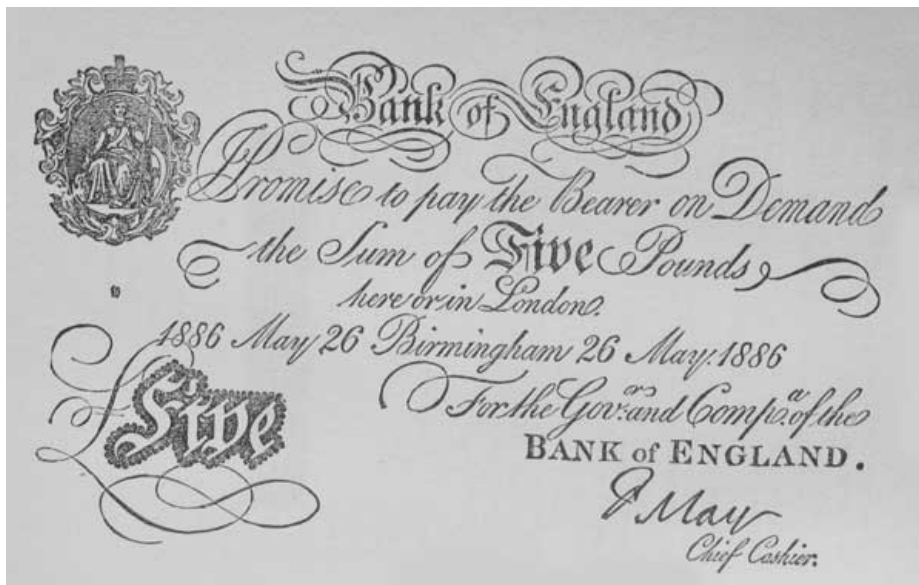 Bank of England
I Promise to pay the Bearer on Demand
the Sum of Five Pounds
here or in London.
1886 May 26 Birmingham 26 May. 1886
For the Gov.rs and Comp.a of the
BANK of ENGLAND.
£Five
F May
Chief Cashier.